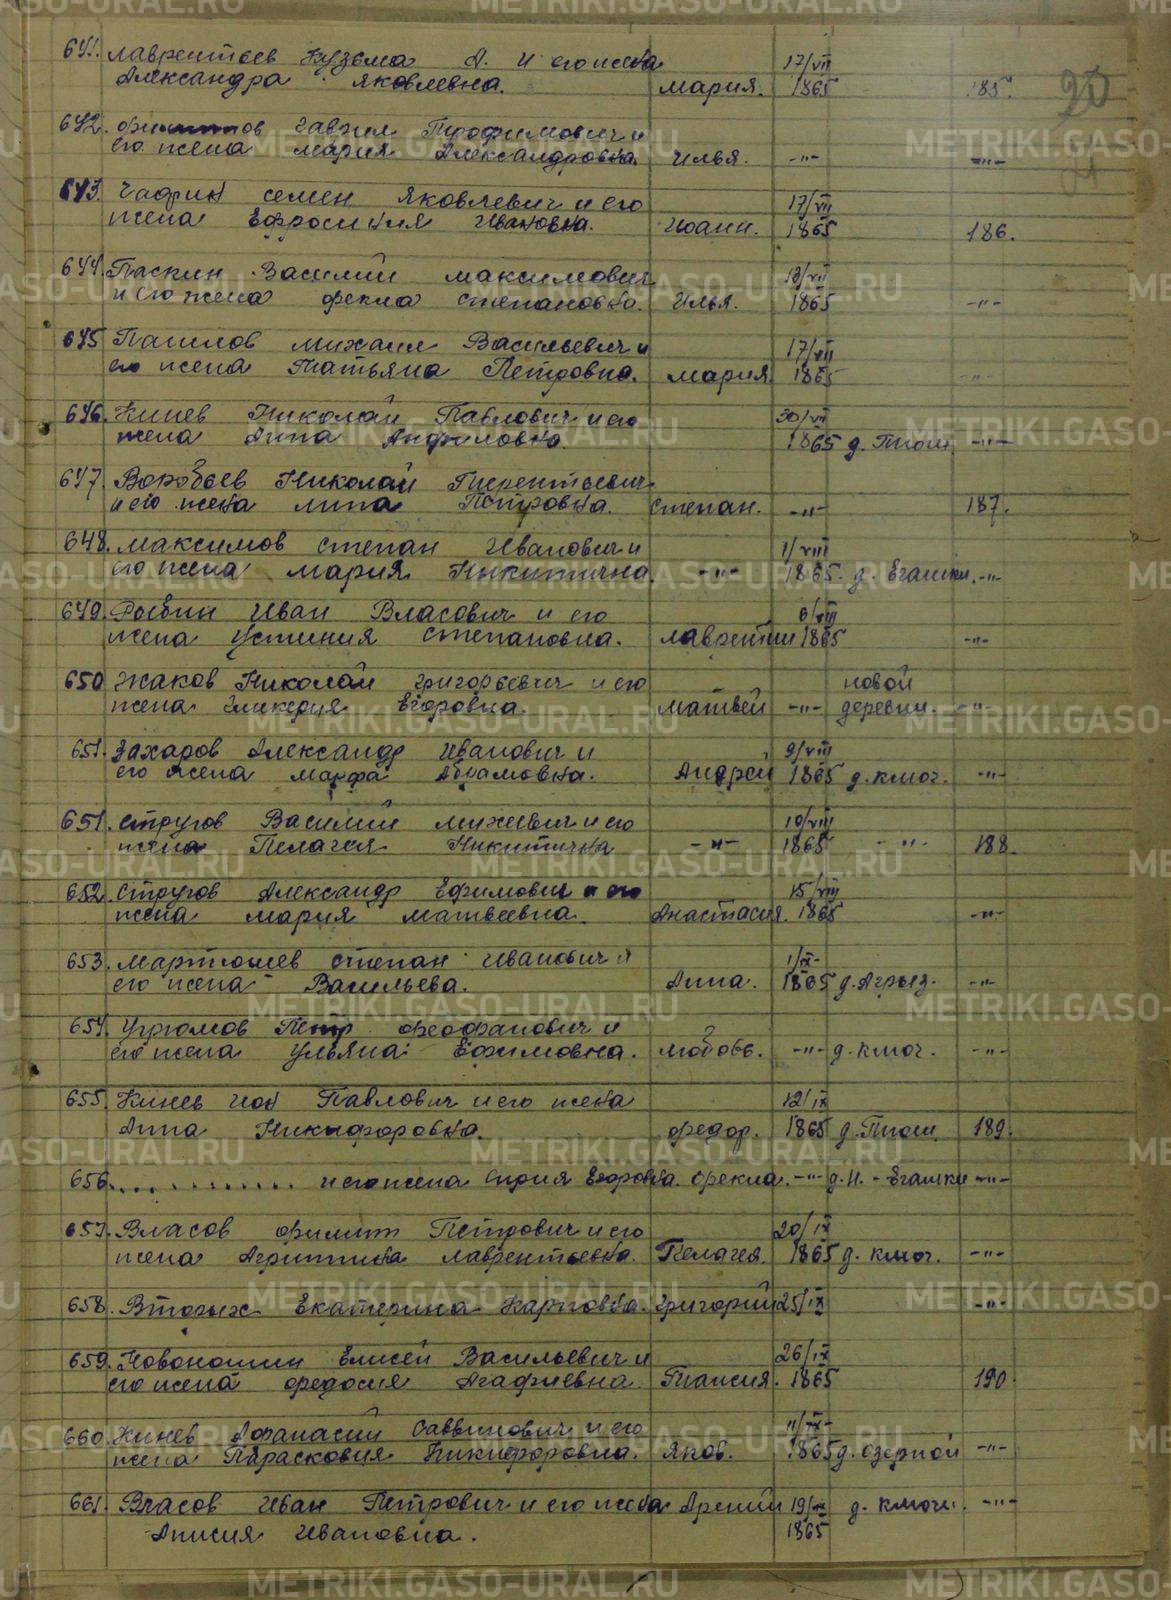 641. Лаврентьев Кузьма А. и его жена 17/VII
Александра Яковлевна. Мария. 1865 185.
642. Гаврил Трофимович и
его жена Мария Александровна. Илья. -"- -"-
643. Семен Яковлевич и его 17/VII
жена Ефросиния Ивановна. Иоанн. 1865 186.
644. Паскин Василий Максимович 18/VII
и его жена Фекла Степановна. Илья. 1865 -"-
645 Михаил Васильевич и 17/VII
его жена Татьяна Петровна. Мария. 1865 -"-
646. Кинев Николай Павлович и его 30/VII
жена Анна 1865 д. -"-
647. Воробьев Николай Терентьевич
и его жена Анна Петровна. Степан. -"- 187.
648. Максимов Степан Иванович и 1/VIII
его жена Мария Никитична -"- 1865. д. -"-
649. Иван Власович и его 6/VIII
жена Устиния Степановна. Лаврентий 1865 -"-
650 Жаков Николай Григорьевич и его новой
жена Гликерия Егоровна. Матвей -"- деревни. -"-
651. Захаров Александр Иванович и 9/VIII
его жена Марфа Абрамовна. Андрей 1865 д. ключ. -"-
651. Стругов Василий Михеевич и его 10/VIII
жена Пелагея Никитична -"- 1865 -"- 188.
652. Стругов Александр Ефимович и его 15/VIII
жена Мария Матвеевна. Анастасия. 1865 -"-
653. Мартюшев Степан Иванович и 1/IX
его жена Васильева. Анна. 1865 д. Агрыз. -"-
654. Угрюмов Петр Феофанович и
его жена Ульяна Ефимовна. Любовь. -"- д. ключ. -"-
655. Кинев Иов Павлович и его жена 12/IX
Анна Никифоровна. Федор. 1865 д. 189.
656. . . . . . . . . . . . . и его жена Егоровна. Фекла. -"- д. Н. - -"-
657. Власов Филипп Петрович и его 20/IX
жена Агриппина Лаврентьевна. Пелагея. 1865 д. ключ. -"-
658. Вторых Екатерина Карповна. Григорий 25/IX -"-
659. Новоношин Елисей Васильевич и 26/IX
его жена Федосия Агафиевна. Таисия. 1865 190.
660. Кинев Афанасий Саввинович и его
жена Парасковия Никифоровна. Яков. 1865 д. Озерной -"-
661. Власов Иван Петрович и его жена 19/ д. ключи. -"-
Анисия Ивановна. 1865
METRIKI.GASO-URAL.RU